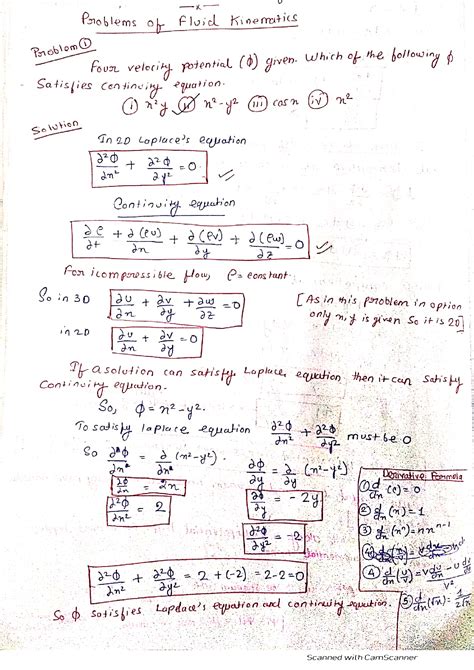 Problems of Fluid Kinematics
Problem ①
Four velocity potential (ϕ) given. Which of the following ϕ
Satisfies continuity equation.
ⓘ x²y ⓘⓘ x²-y² ⓘⓘⓘ cosx ⓘⓥ x²
Solution
In 2D Laplace's equation
∂²ϕ/∂x² + ∂²ϕ/∂y² = 0
Continuity equation
∂ρ/∂t + ∂(ρu)/∂x + ∂(ρv)/∂y + ∂(ρw)/∂z = 0
For icompressible flow, ρ = constant
So in 3D ∂u/∂x + ∂v/∂y + ∂w/∂z = 0
[As in this problem in option
only x, y is given So it is 2D]
in 2D ∂u/∂x + ∂v/∂y = 0
If a solution can satisfy Laplace equation then it can satisfy
Continuity equation.
So, ϕ = x²-y².
To satisfy laplace equation ∂²ϕ/∂x² + ∂²ϕ/∂y² must be 0
So ∂ϕ/∂x = ∂/∂x (x²-y²).
∂ϕ/∂x = 2x
∂²ϕ/∂x² = 2
∂ϕ/∂y = ∂/∂y (x²-y²)
∂ϕ/∂y = -2y
∂²ϕ/∂y² = -2
Derivative Formula
① d/dx (c) = 0
② d/dx (x) = 1
③ d/dx (xⁿ) = nxⁿ⁻¹
④ d/dx (u/v) = (v du/dx - u dv/dx)/v²
⑤ d/dx (√x) = 1/2√x
∂²ϕ/∂x² + ∂²ϕ/∂y² = 2 + (-2) = 2-2 = 0
So ϕ satisfies Laplace's equation and continuity equation.
Scanned with CamScanner